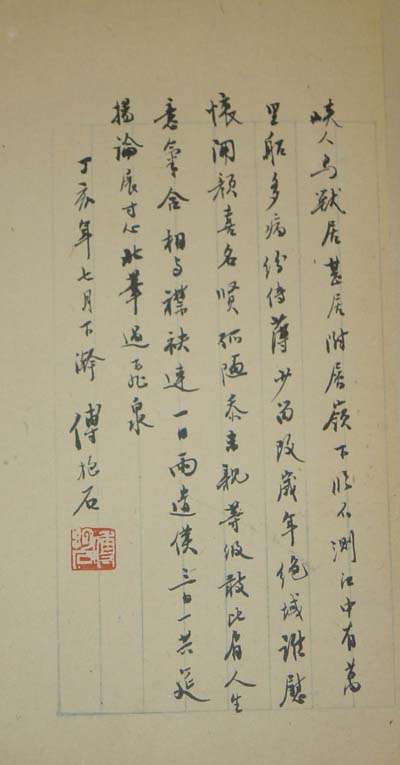 峽人鳥獸居其居附層嶺下臨不測江中有萬
里船多病紛倚薄少留改歲年絕域誰慰
懷開顏喜名賢孤陋忝末親等級敢比肩人生
意氣合相與襟袂連一日兩遣僕三日一共筵
揚論展寸心壯筆過飛泉
丁亥年七月下澣 傅抱石
傅抱石